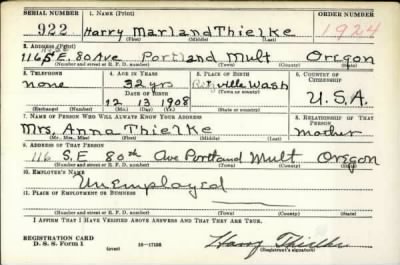 SERIAL NUMBER 1. NAME (Print) ORDER NUMBER
922 Harry Marland Thielke 1924
(First) (Middle) (Last)
2. ADDRESS (Print)
116 S.E. 80 Ave Portland Mult Oregon
(Number and street or R. F. D. number) (Town) (County) (State)
3. TELEPHONE 4. AGE IN YEARS 5. PLACE OF BIRTH 6. COUNTRY OF CITIZENSHIP
none 32 yrs Wash
DATE OF BIRTH (Town or county)
12 13 1908 U.S.A.
(Exchange) (Number) (Mo.) (Day) (Yr.) (State or country)
7. NAME OF PERSON WHO WILL ALWAYS KNOW YOUR ADDRESS 8. RELATIONSHIP OF THAT PERSON
Mrs. Anna Thielke mother
(Mr., Mrs., Miss) (First) (Middle) (Last)
9. ADDRESS OF THAT PERSON
116 S.E 80th Ave Portland Mult Oregon
(Number and street or R. F. D. number) (Town) (County) (State)
10. EMPLOYER'S NAME
Unemployed
11. PLACE OF EMPLOYMENT OR BUSINESS
(Number and street or R. F. D. number) (Town) (County) (State)
I AFFIRM THAT I HAVE VERIFIED ABOVE ANSWERS AND THAT THEY ARE TRUE.
REGISTRATION CARD
D. S. S. Form 1 (over) 16—17105 Harry Thielke
(Registrant's signature)